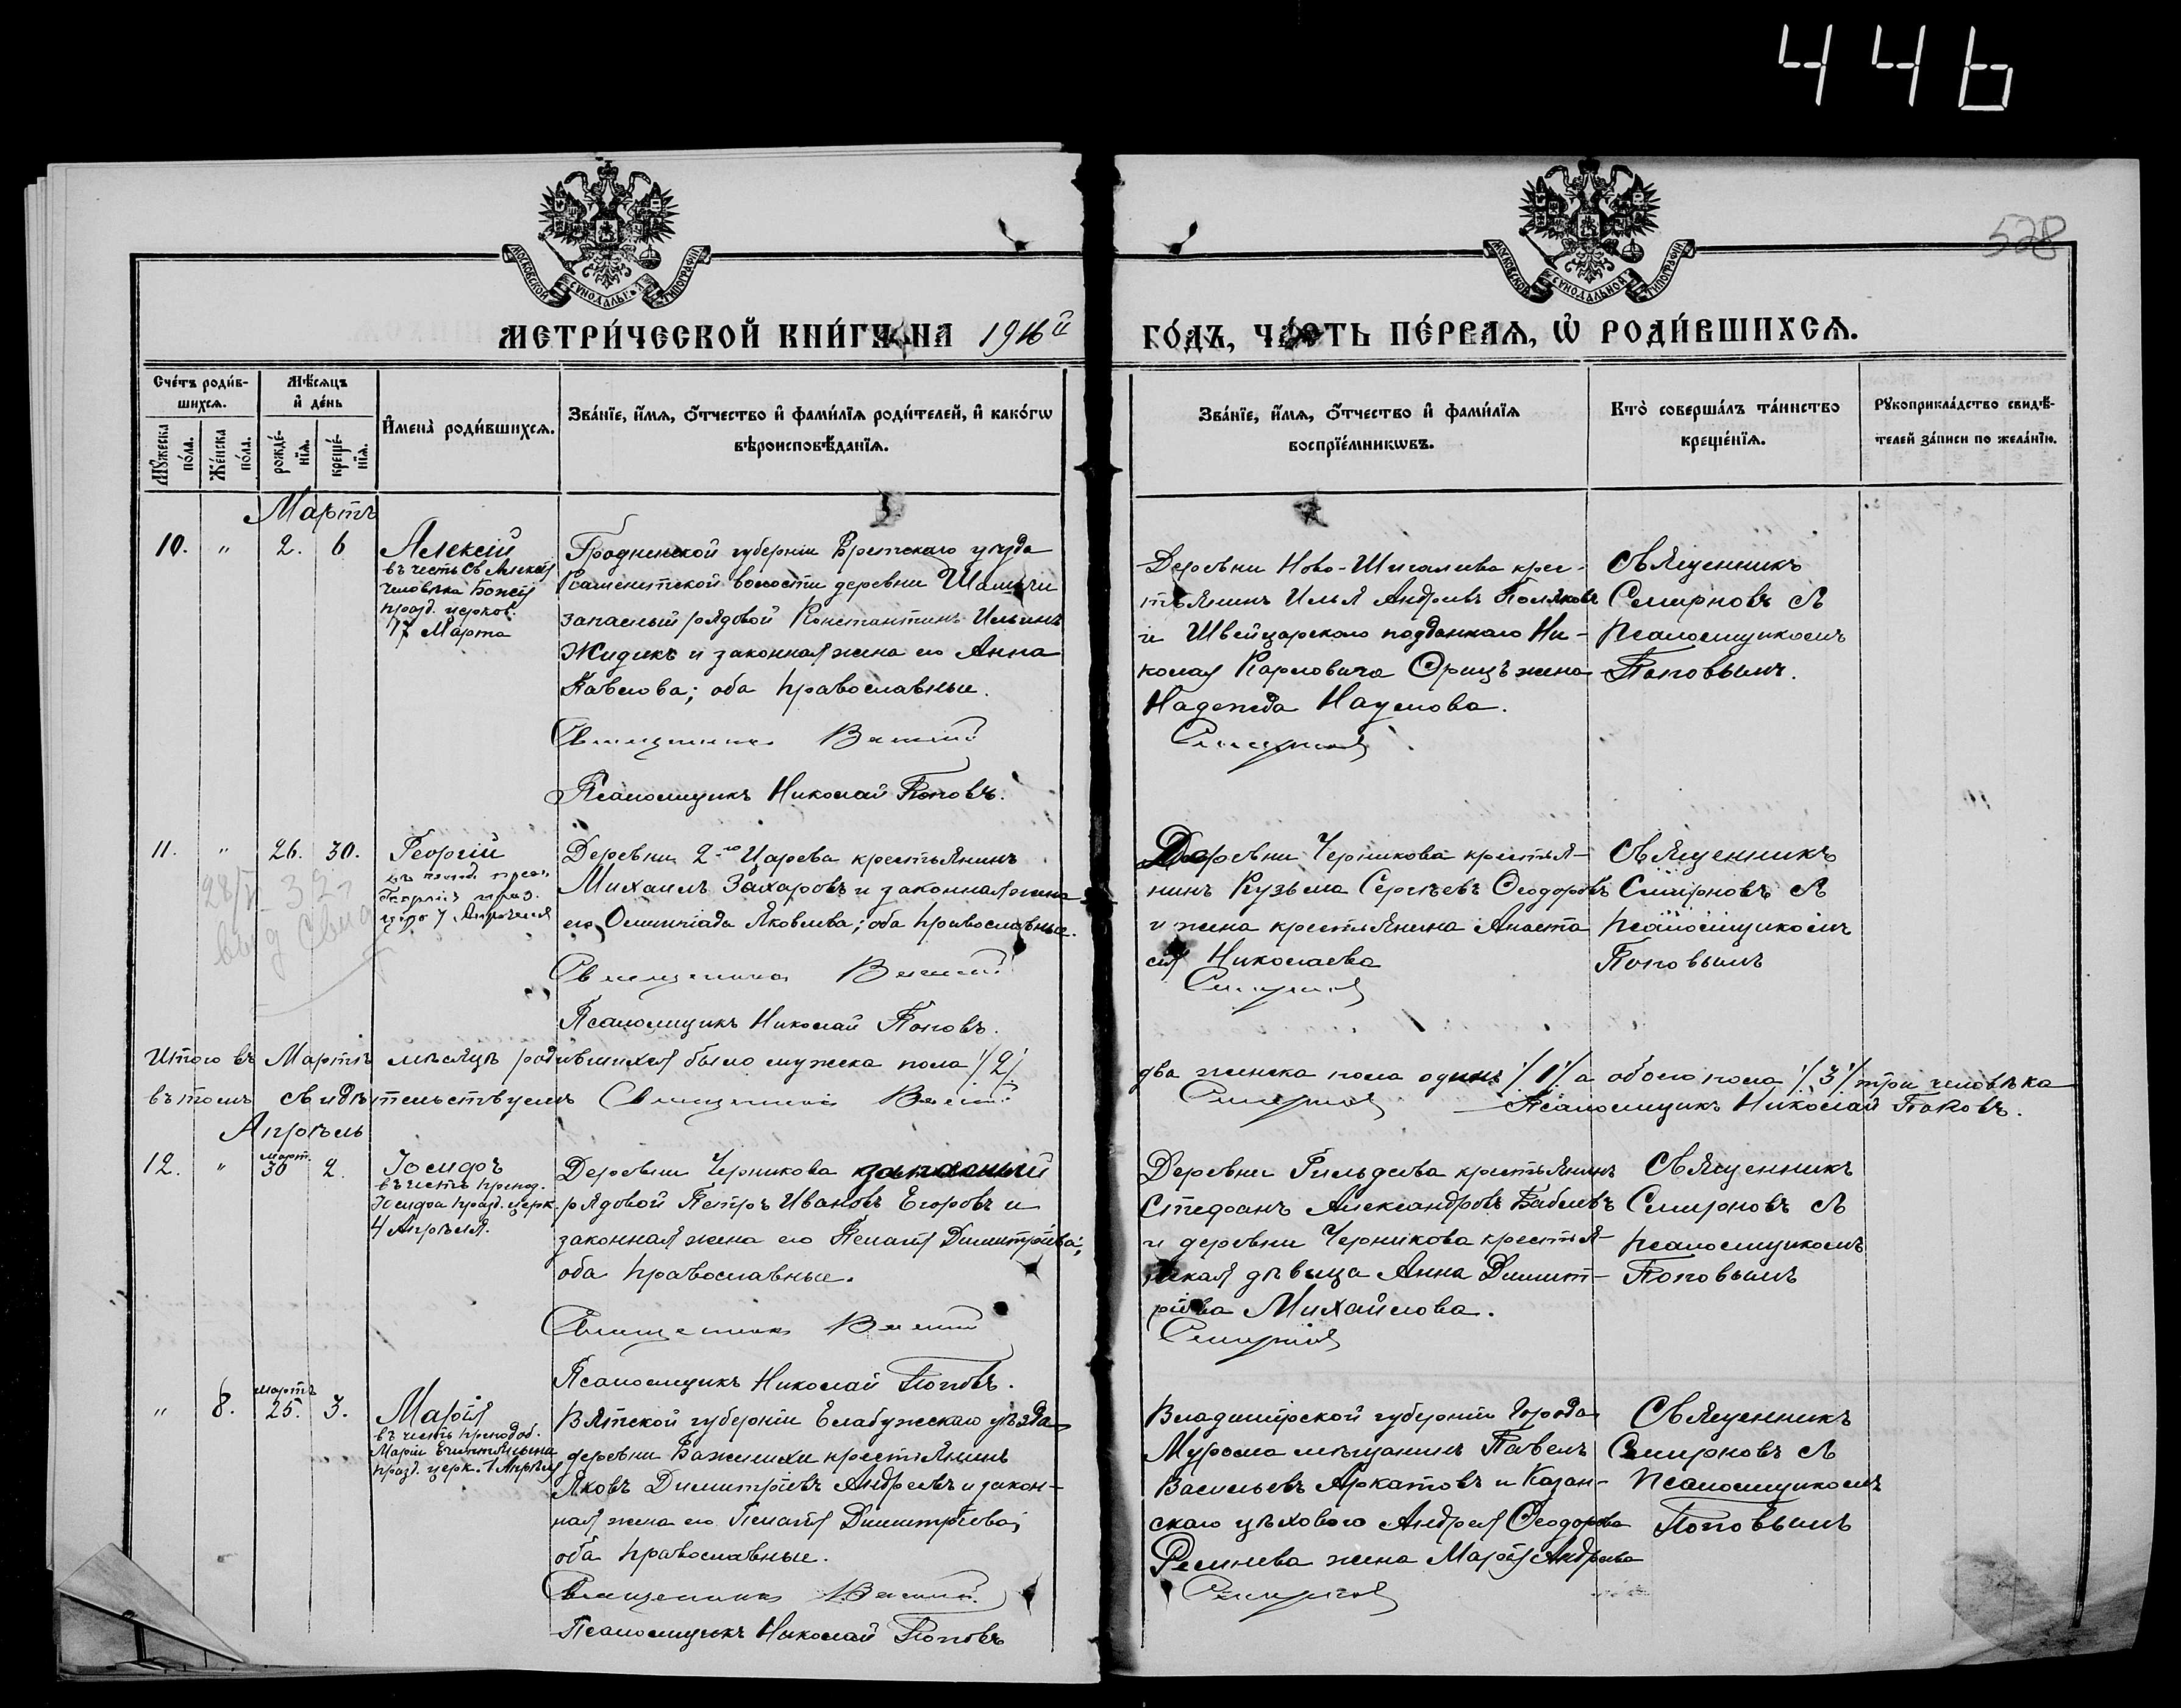 446
528
МОСКОВСКОЙ СѴНОДАЛЬНОЙ ТИПОГРАФІИ
МОСКОВСКОЙ СѴНОДАЛЬНОЙ ТИПОГРАФІИ
МЕТРИ́ЧЕСКОЙ КНИ́ГИ НА 1916й ГО́ДЪ, ЧА́СТЬ ПЕ́РВАѦ, Ѡ҆ РОДИ́ВШИХСѦ.
Сче́тъ роди́в-
шихсѧ.
Мꙋжеска по́ла.
Же́нска по́ла.
Мѣ́сѧцъ
и҆ де́нь
рожде́-
нїѧ.
креще́-
нїѧ.
И҆мена̀ роди́вшихсѧ.
Зва́нїе, и҆́мѧ, ѻ҆́тчество и҆ фами́лїѧ роди́телей, и҆ како́гѡ
вѣроисповѣ́данїѧ.
Зва́нїе, и҆́мѧ, ѻ҆́тчество и҆ фами́лїѧ
воспрїе́мникѡвъ.
Кто̀ соверша́лъ та́инство
креще́нїѧ.
Рꙋкоприкла́дство свидѣ́-
телей за́писи по жела́нїю.
Мартъ
10. " 2. 6
Алексій
въ честь Св Алексія
человѣка Божія
празд. церков.
17 Марта
Гродненской губерніи Брестскаго уѣзда
Каменитской волости деревни
запасный рядовой Константинъ Ильинъ
Жидикъ и законная жена его Анна
Павлова; оба православные.
Священникъ
Псаломщикъ Николай Поповъ.
Деревни Ново-Шигалеева крес-
тьянинъ Илья Андреевъ Поляковъ
и Швейцарскаго подданнаго Ни-
колая Карловича жена
Надежда Наумова.
Смирновъ
Священникъ
Смирновъ съ
псаломщикомъ
Поповымъ.
11. " 26. 30.
Георгій
Деревни 2-го Царева крестьянинъ
Михаилъ Захаровъ и законная жена
его Олимпіада Яковлева; оба православные.
Священникъ
Псаломщикъ Николай Поповъ.
Деревни Черникова крестья-
нинъ Кузьма Сергѣевъ Ѳеодоровъ
и жена крестьянина Анаста
сія Николаева
Смирновъ
Священникъ
Смирновъ съ
псаломщикомъ
Поповымъ
Итого въ Мартѣ мѣсяцѣ родившихся было мужска пола /2/ два женска пола одинъ /1/ а обоего пола /3/ три человѣка
въ томъ свидѣтельствуемъ Священникъ Смирновъ Псаломщикъ Николай Поповъ.
Апрѣль
12. " март. 30 2.
Іосифъ
въ честь препод.
празд. церк.
4 Апрѣля.
Деревни Черникова запасный
рядовой Петръ Ивановъ Егоровъ и
законная жена его Пелагія Димитріева;
оба православные.
Священникъ
Псаломщикъ Николай Поповъ.
Деревни Гильдеева крестьянинъ
Стефанъ Александровъ
и деревни Черникова крестья-
нская дѣвица Анна Димит-
ріева Михайлова.
Смирновъ
Священникъ
Смирновъ съ
псаломщикомъ
Поповымъ
" 8. мартъ 25. 3.
Марія
въ честь преподоб.
Маріи Египтяныни
празд. церк. 1 Апрѣля
Вятской губерніи Елабужскаго уѣзда
деревни крестьянинъ
Яковъ Димитріевъ Андреевъ и закон-
ная жена его Пелагія Димитріева;
оба православные.
Священникъ
Псаломщикъ Николай Поповъ
Владимірской губерніи Города
Мурома мѣщанинъ Павелъ
Васильевъ Аркатовъ и Казан-
скаго цѣховаго Андрея Ѳеодорова
жена Марія Андреева
Смирновъ
Священникъ
Смирновъ съ
псаломщикомъ
Поповымъ